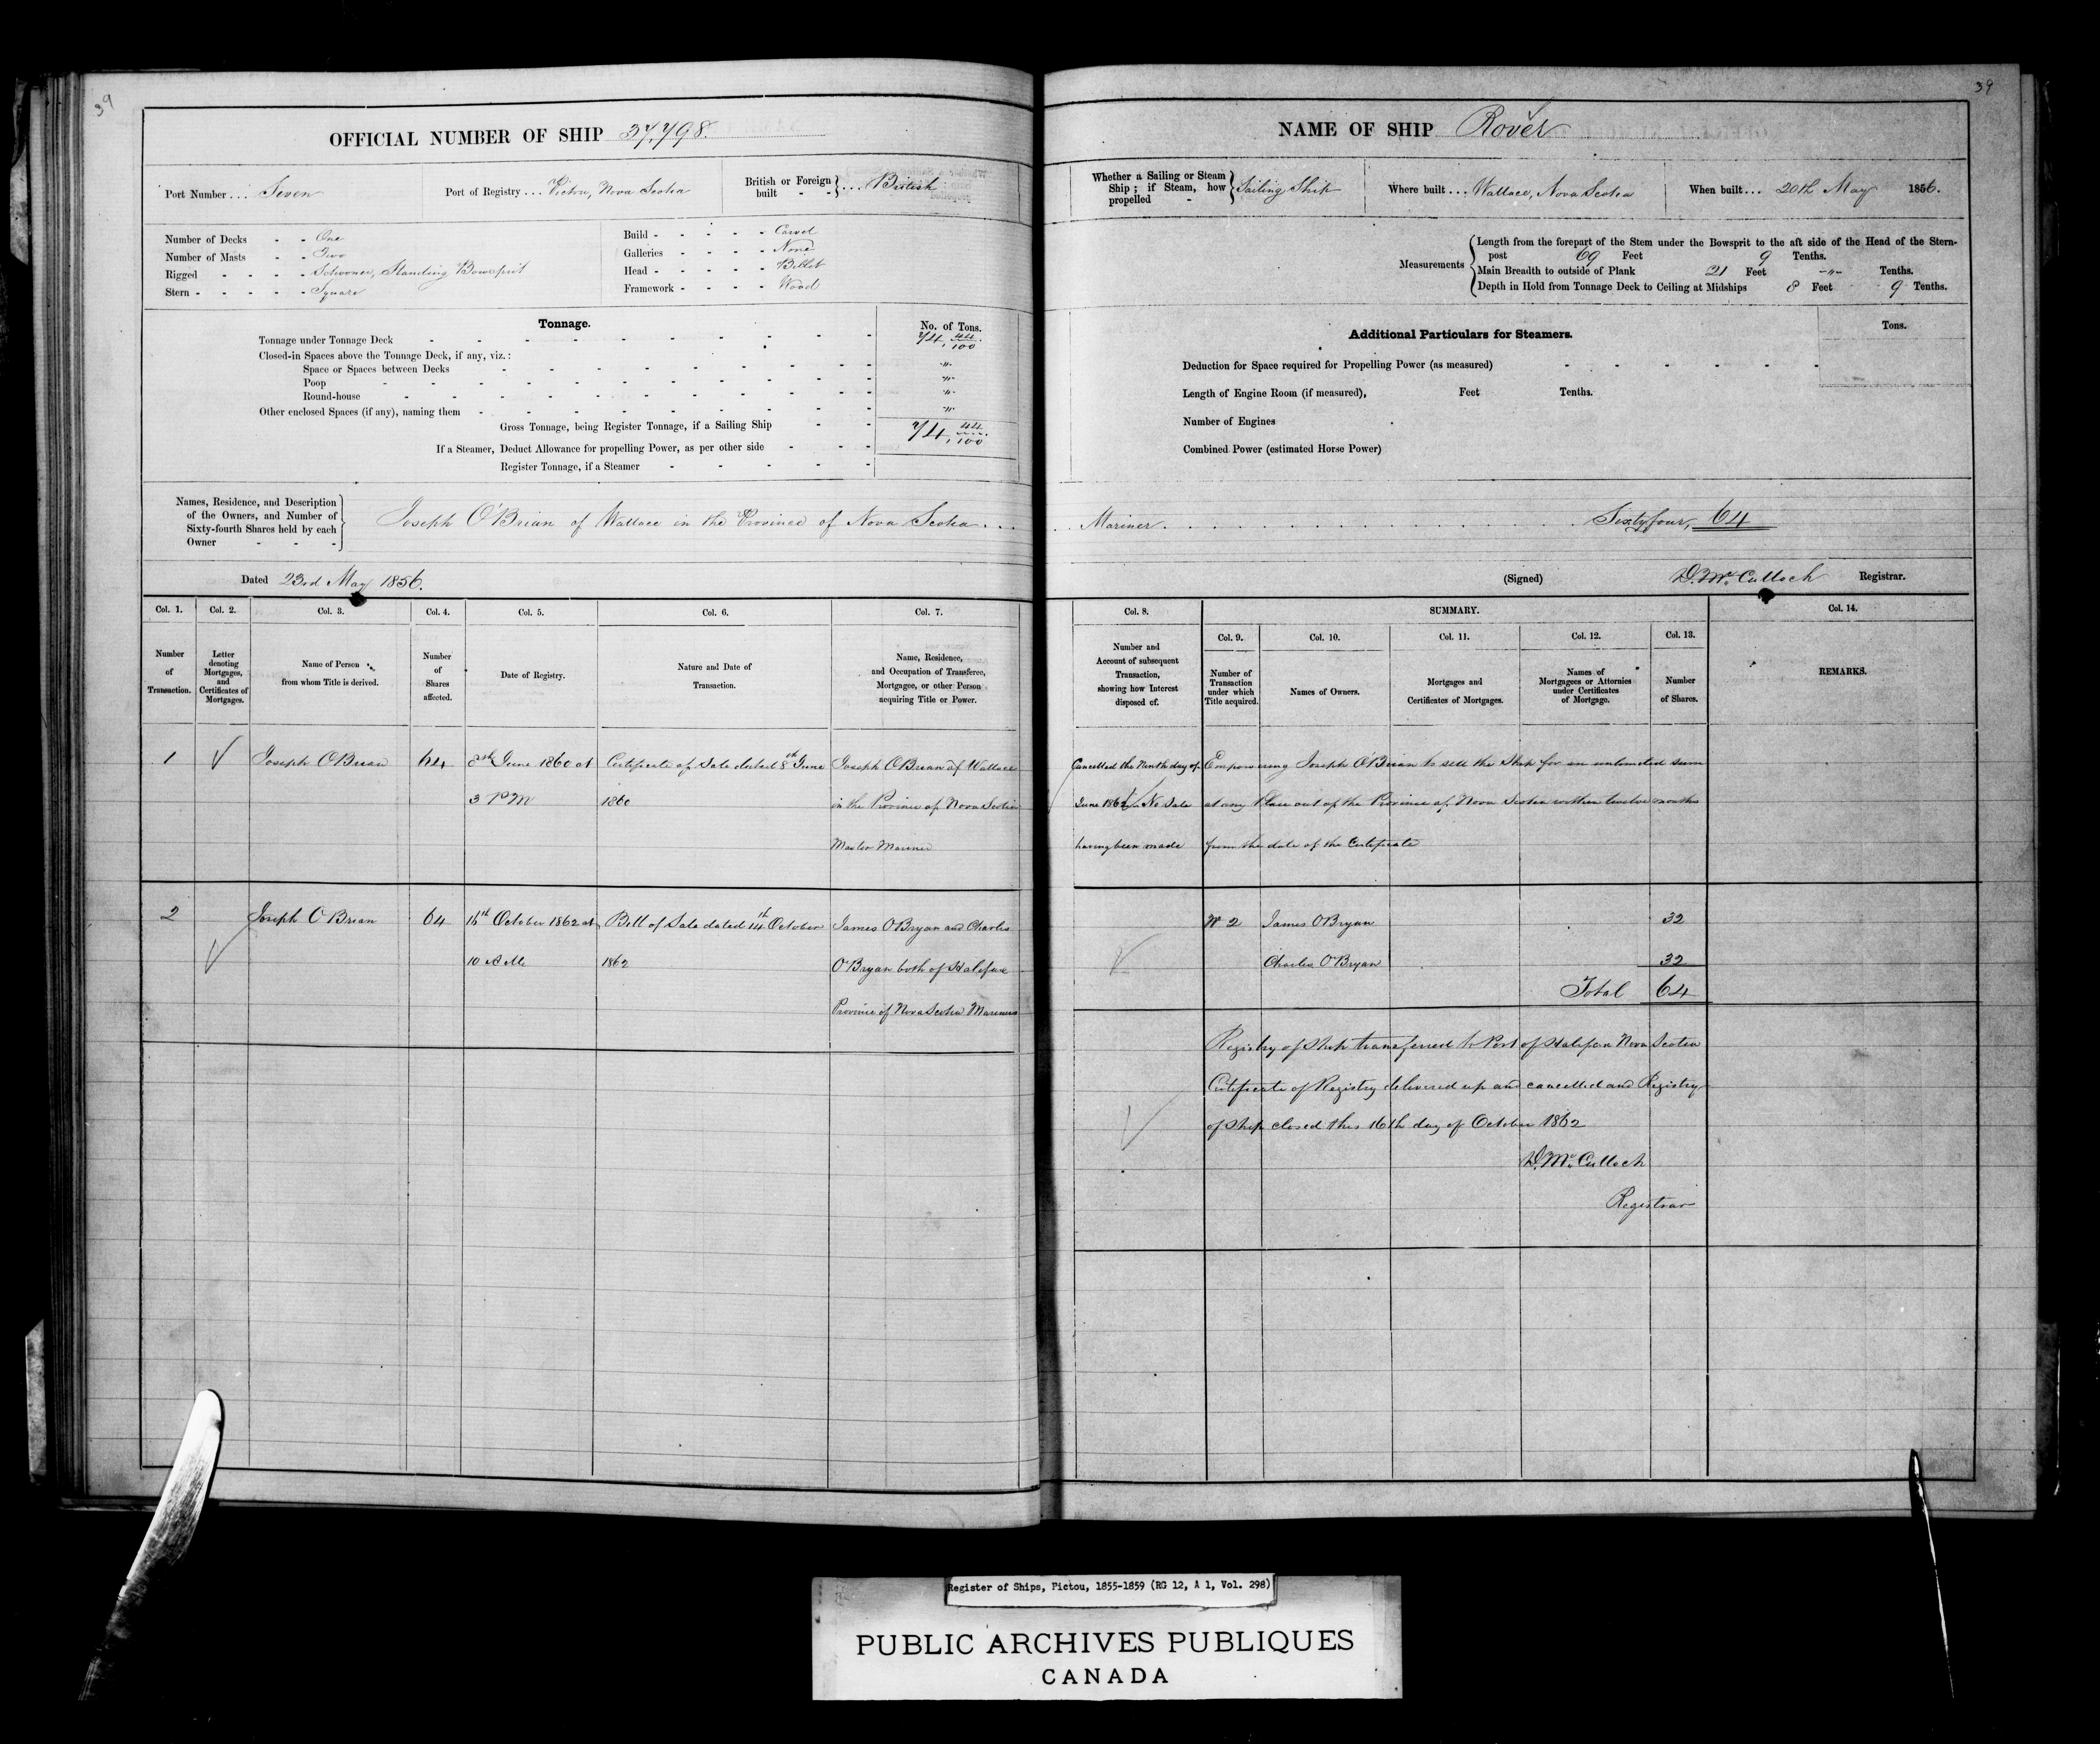 39
OFFICIAL NUMBER OF SHIP 37,798.
Port Number ... Seven
Port of Registry ... Pictou, Nova Scotia
British or Foreign built - - } ... British
Number of Decks - - One
Number of Masts - - Two
Rigged - - - - Schooner, Standing Bowsprit
Stern - - - - - Square
Build - - - - - Carvel
Galleries - - - - None
Head - - - - - Billet
Framework - - - - Wood
Tonnage.
No. of Tons.
Tonnage under Tonnage Deck 74, 44/100
Closed-in Spaces above the Tonnage Deck, if any, viz.:
Space or Spaces between Decks - - -"-
Poop - - -"-
Round-house - - -"-
Other enclosed Spaces (if any), naming them - - -"-
Gross Tonnage, being Register Tonnage, if a Sailing Ship - - 74, 44/100
If a Steamer, Deduct Allowance for propelling Power, as per other side - - -
Register Tonnage, if a Steamer - - - - -
Names, Residence, and Description
of the Owners, and Number of
Sixty-fourth Shares held by each
Owner - - -
Joseph O'Brian of Wallace in the Province of Nova Scotia ...
Dated 23rd May 1856.
Col. 1. Col. 2. Col. 3. Col. 4. Col. 5. Col. 6. Col. 7.
Number of Transaction.
Letter denoting Mortgages, and Certificates of Mortgages.
Name of Person from whom Title is derived.
Number of Shares affected.
Date of Registry.
Nature and Date of Transaction.
Name, Residence, and Occupation of Transferee, Mortgagee, or other Person acquiring Title or Power.
1 Joseph O'Brian 64 8th June 1860 at Certificate of Sale dated 8th June Joseph O'Brian of Wallace
3 PM 1860 in the Province of Nova Scotia
Master Mariner
2 Joseph O Brian 64 16th October 1862 at Bill of Sale dated 14th October James O'Bryan and Charles
10 AM 1862 O'Bryan both of Halifax
Province of Nova Scotia Mariners
39
NAME OF SHIP Rover
Whether a Sailing or Steam Ship; if Steam, how propelled - } Sailing Ship
Where built ... Wallace, Nova Scotia
When built ... 20th May 1856.
Measurements
Length from the forepart of the Stem under the Bowsprit to the aft side of the Head of the Stern-
post 69 Feet 9 Tenths.
Main Breadth to outside of Plank 21 Feet -"- Tenths.
Depth in Hold from Tonnage Deck to Ceiling at Midships 8 Feet 9 Tenths.
Additional Particulars for Steamers.
Tons.
Deduction for Space required for Propelling Power (as measured) - - - - - -
Length of Engine Room (if measured), Feet Tenths.
Number of Engines
Combined Power (estimated Horse Power)
Mariner. . . . . . . . . . . . Sixtyfour, 64
(Signed) D. McCulloch Registrar.
Col. 8. SUMMARY. Col. 14.
Col. 9. Col. 10. Col. 11. Col. 12. Col. 13.
Number and Account of subsequent Transaction, showing how Interest disposed of.
Number of Transaction under which Title acquired.
Names of Owners.
Mortgages and Certificates of Mortgages.
Names of Mortgagees or Attornies under Certificates of Mortgage.
Number of Shares.
REMARKS.
Cancelled the Ninth day of Empowering Joseph O'Brian to sell the Ship for an unlimited sum
June 1862 No Sale at any Place out of the Province of Nova Scotia within twelve months
having been made from the date of the Certificate
No 2 James O'Bryan 32
Charles O'Bryan 32
Total 64
Registry of Ship transferred to Port of Halifax Nova Scotia
Certificate of Registry delivered up and cancelled and Registry
of Ship closed this 16th day of October 1862
D. McCulloch
Registrar
Register of Ships, Pictou, 1855-1859 (RG 12, A 1, Vol. 298)
PUBLIC ARCHIVES PUBLIQUES
CANADA